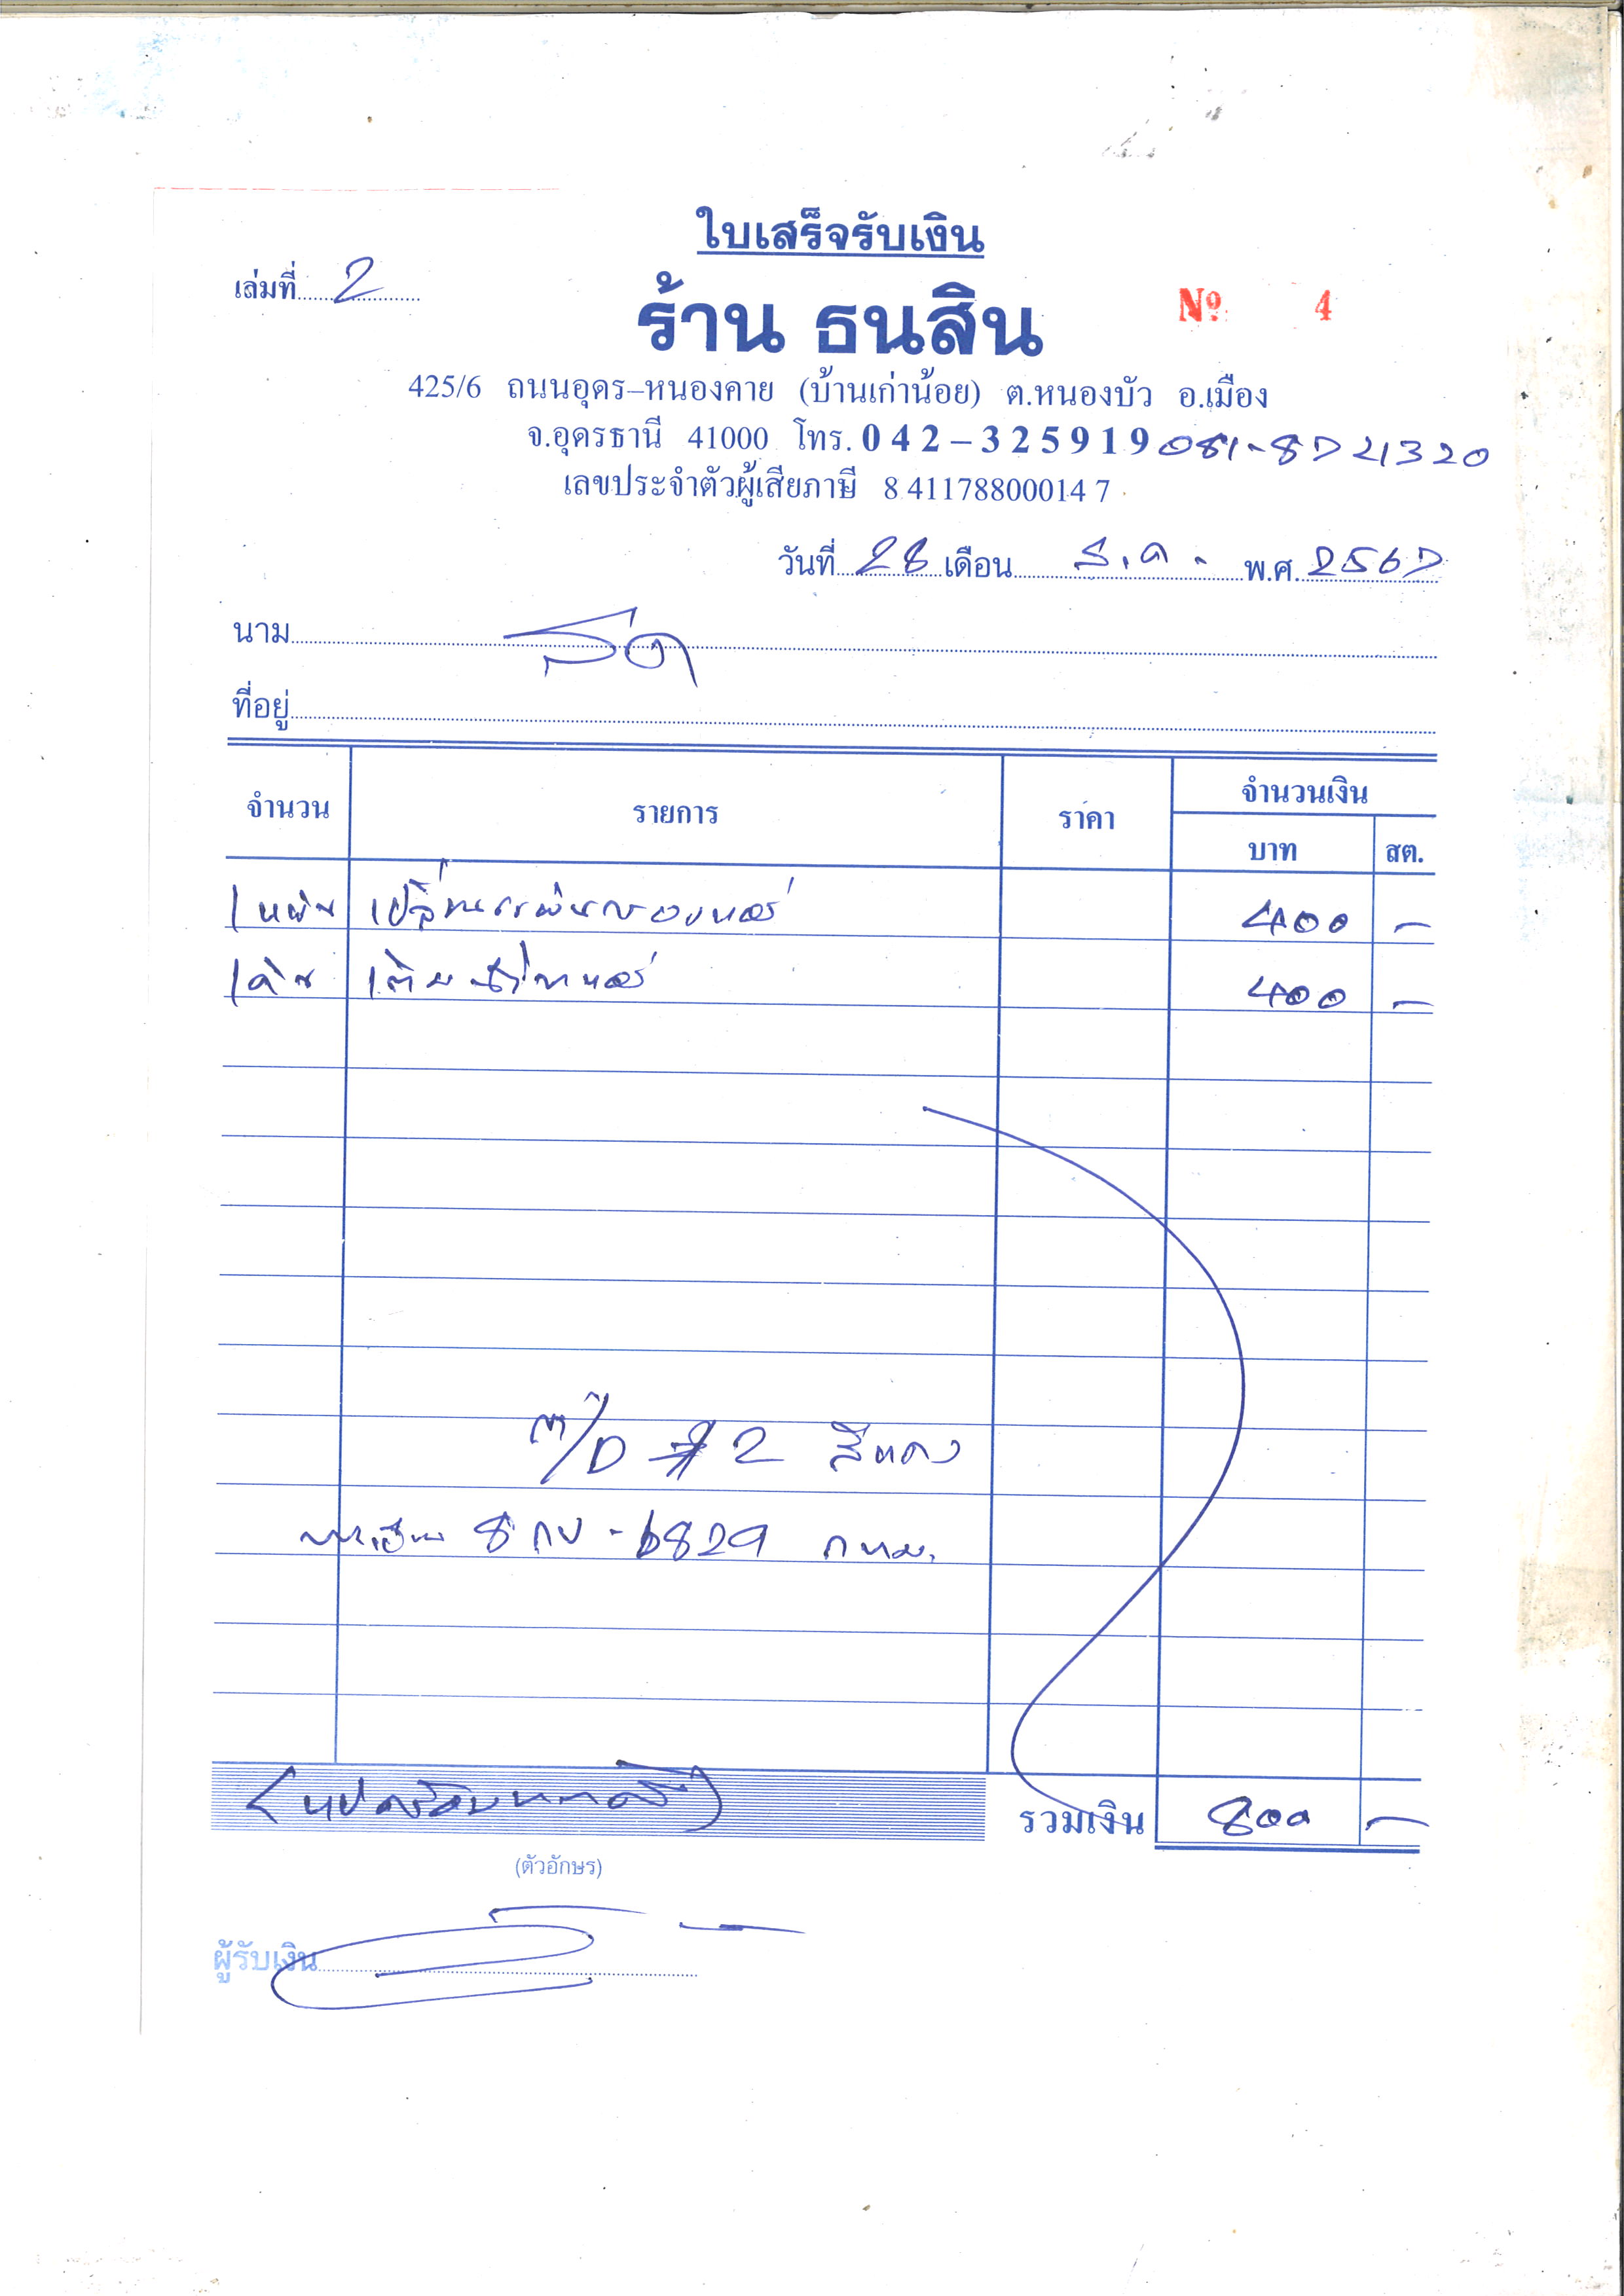 ใบเสร็จรับเงิน
เล่มที่ 2
ร้าน ธนสิน
Nº 4
425/6 ถนนอุดร–หนองคาย (บ้านเก่าน้อย) ต.หนองบัว อ.เมือง
จ.อุดรธานี 41000 โทร. 042–325919 081-8721320
เลขประจำตัวผู้เสียภาษี 8 41178800014 7
วันที่ 28 เดือน ธ.ค. พ.ศ. 2567
นาม สด
ที่อยู่
จำนวน รายการ ราคา จำนวนเงิน
บาท สต.
1 400 –
1 เติมน้ำยาแอร์ 400 –
M/D #2 สีแดง
ทะเบียน 8กบ-6829 กทม.
(แปดร้อยบาท) รวมเงิน 800 –
(ตัวอักษร)
ผู้รับเงิน